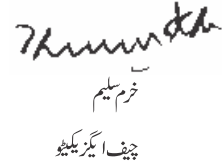 خرم سلیم
چیف ایگزیکیٹو